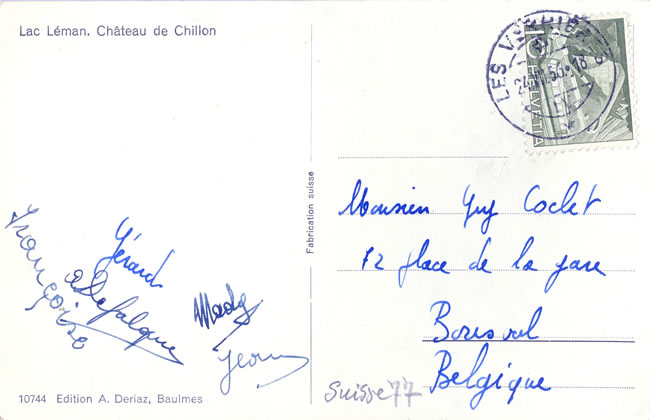 Lac Léman. Château de Chillon
HELVETIA
LES
24. 56-18
Fabrication suisse
Monsieur Guy Coclet
72 place de la gare
Boussval
Belgique
Françoise
Gérard
Mady
Jean
Suisse '77
10744 Edition A. Deriaz, Baulmes